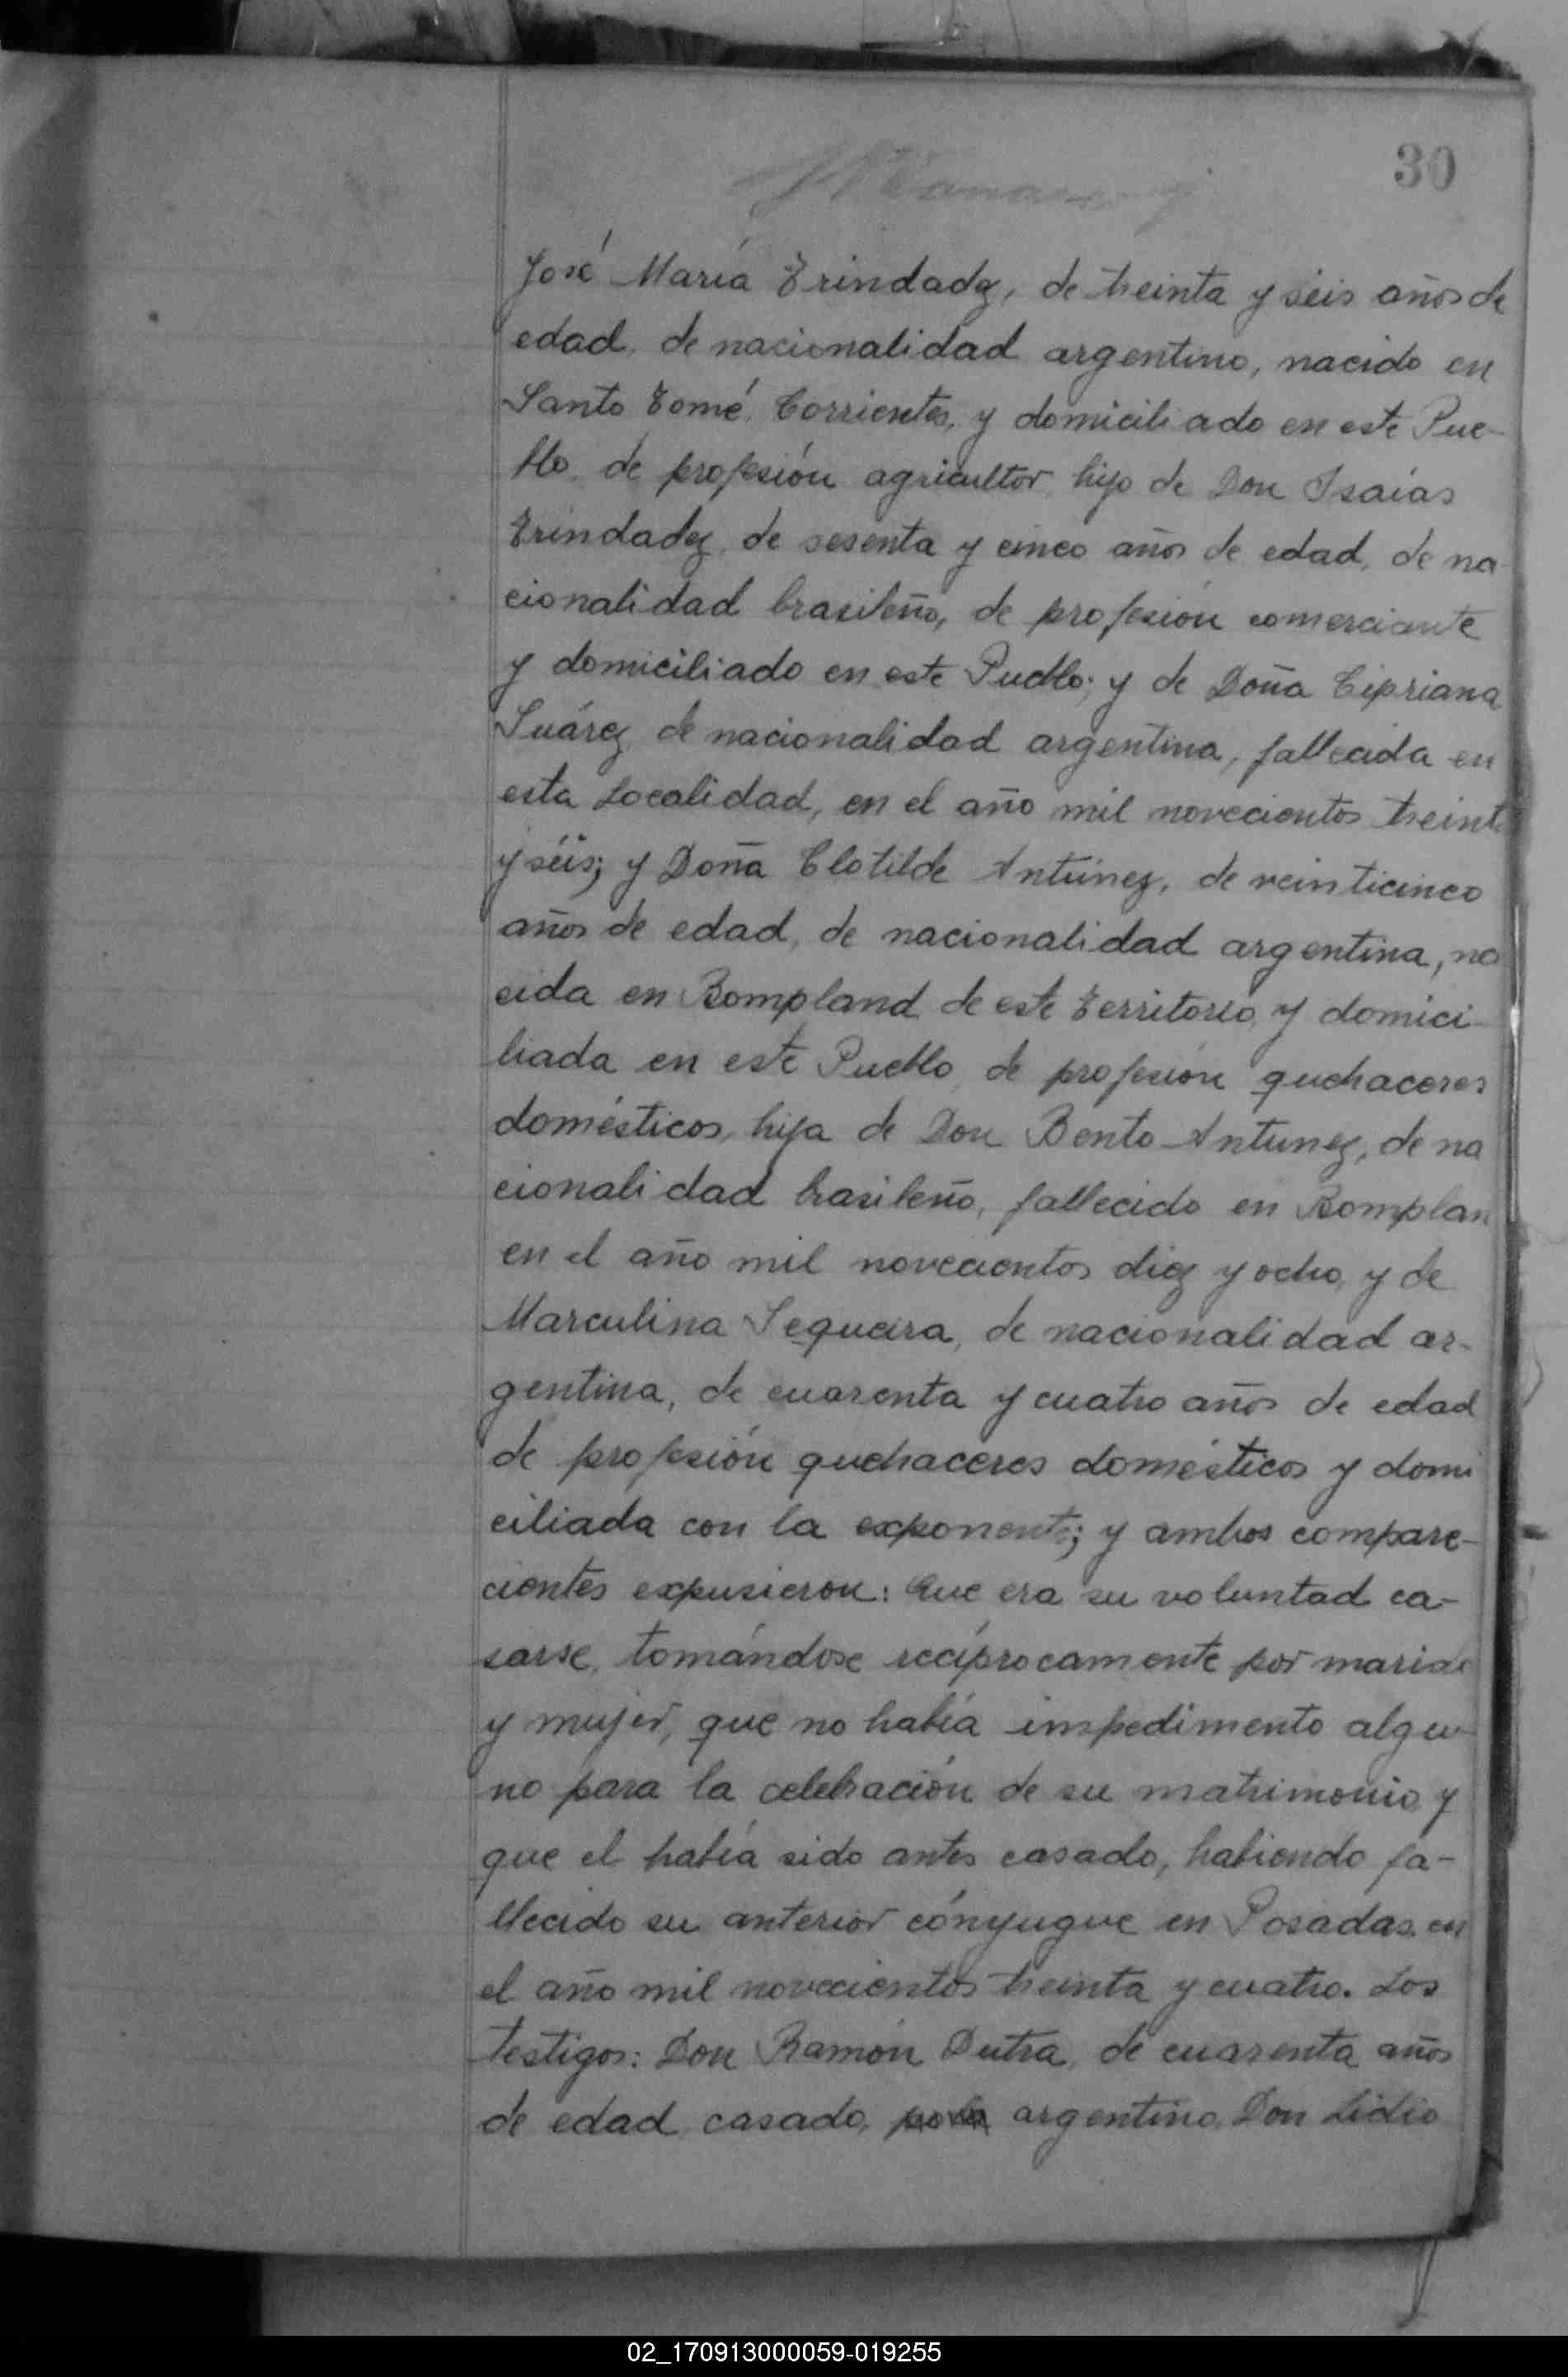 30
José María Trindadez, de treinta y seis años de
edad, de nacionalidad argentino, nacido en
Santo Tomé, Corrientes, y domiciliado en este Pue-
blo, de profesión agricultor, hijo de Don Isaías
Trindadez, de sesenta y cinco años de edad, de na
cionalidad brasileño, de profesión comerciante
y domiciliado en este Pueblo; y de Doña Cipriana
Suárez de nacionalidad argentina, fallecida en
esta Localidad, en el año mil novecientos treinta
y seis; y Doña Clotilde Antúnez, de veinticinco
años de edad, de nacionalidad argentina, na
cida en Bompland de este Territorio, y domici-
liada en este Pueblo, de profesión quehaceres
domésticos, hija de Don Bento Antunez, de na
cionalidad brasileño, fallecido en Bomplan
en el año mil novecientos diez y ocho, y de
Marculina Sequeira, de nacionalidad ar-
gentina, de cuarenta y cuatro años de edad
de profesión quehaceres domésticos y domi
ciliada con la exponente; y ambos compare-
cientes expusieron: Que era su voluntad ca-
sarse, tomándose recíprocamente por marido
y mujer, que no había impedimento algu-
no para la celebración de su matrimonio, y
que el había sido antes casado, habiendo fa-
llecido su anterior cónyugue en Posadas, en
el año mil novecientos treinta y cuatro. Los
testigos: Don Ramón Dutra, de cuarenta años
de edad, casado, argentino, Don Lidio
02_170913000059-019255